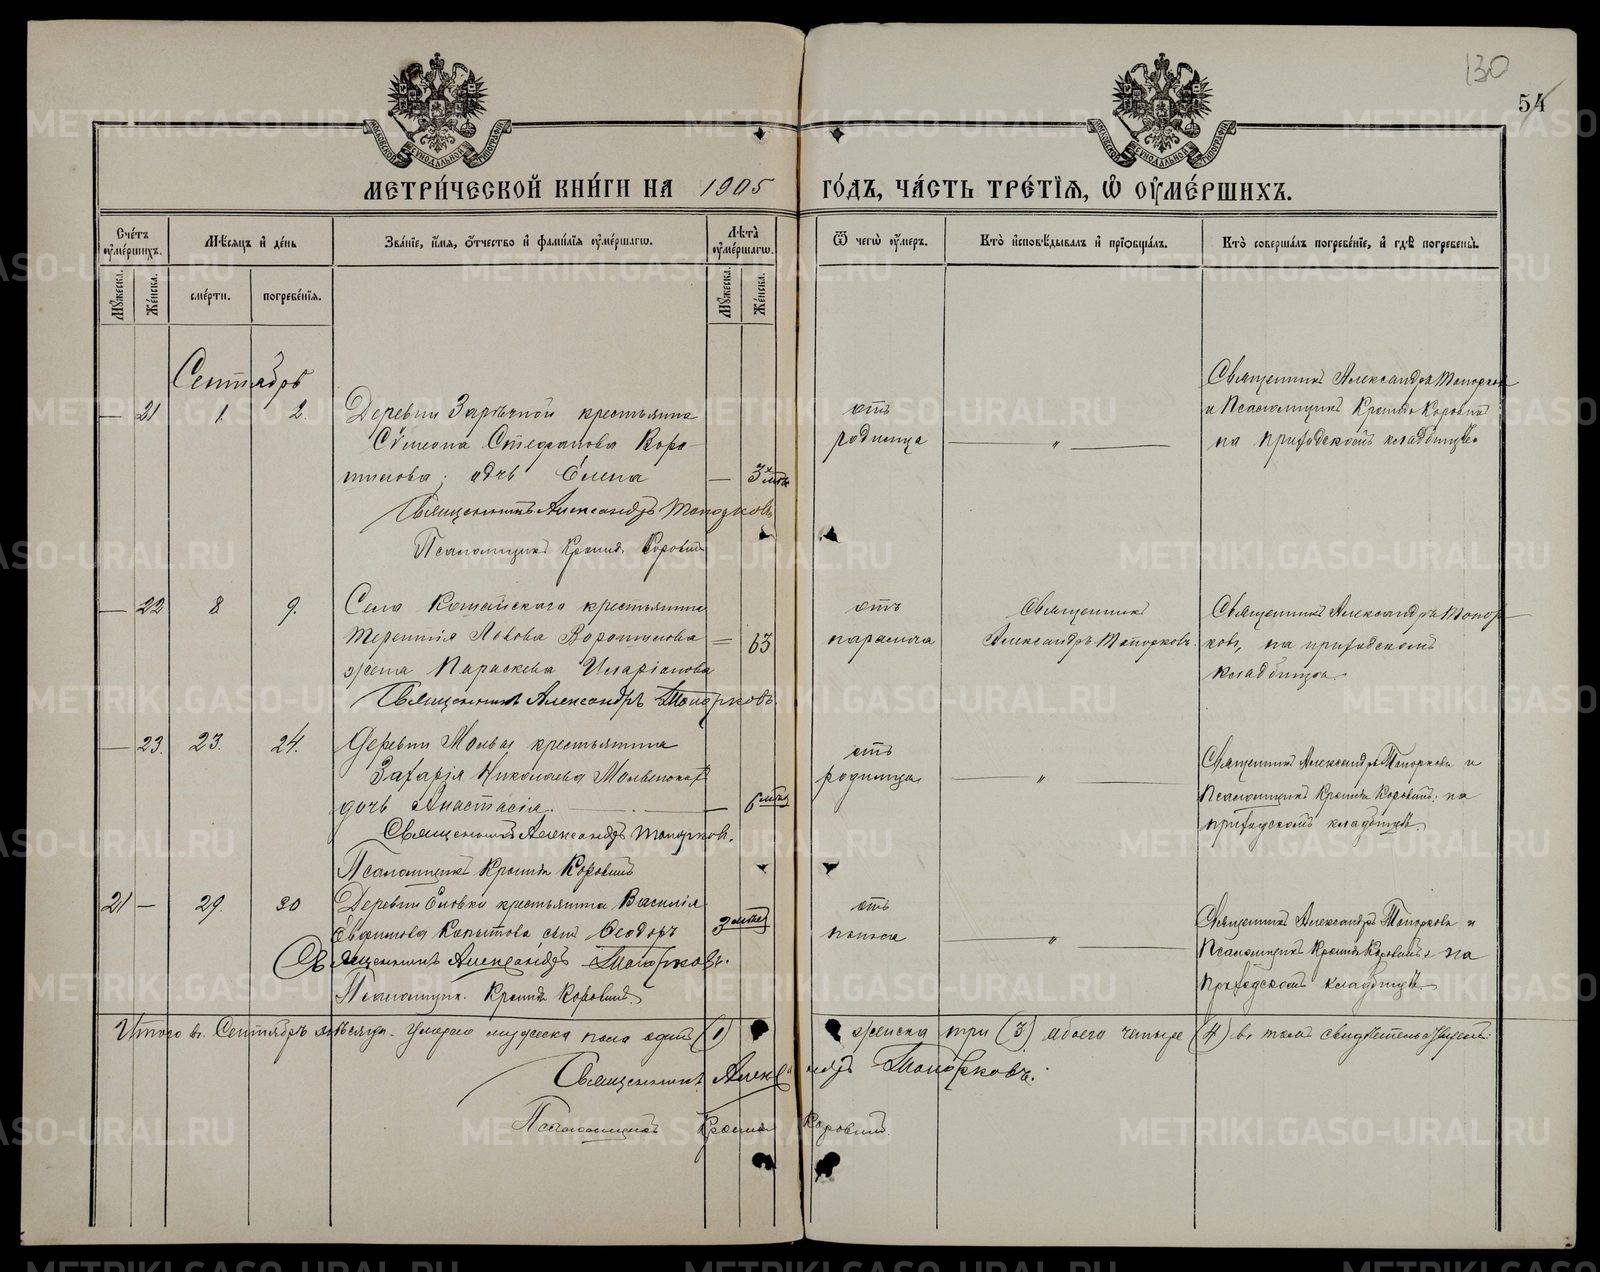 130
54
МЕТРИ́ЧЕСКОЙ КНИ́ГИ НА 1905 ГО́ДЪ, ЧА́СТЬ ТРЕ́ТІѦ, Ѡ҆ ОУ҆МЕ́РШИХЪ.
Сче́тъ оу҆ме́ршихъ.
Мꙋ́жеска.
Же́нска.
Мѣ́сяцъ и҆ де́нь
сме́рти.
погребе́нїѧ.
Зва́нїе, и҆́мѧ, ѻ҆́тчество и҆ фами́лїѧ оу҆ме́ршагѡ.
Лѣ́та оу҆ме́ршагѡ.
Мꙋ́жеска.
Же́нска.
Ѿ чегѡ̀ оу҆́меръ.
Кто̀ и҆сповѣ́дывалъ и҆ прїѡбща́лъ.
Кто̀ соверша́лъ погребе́нїе, и҆ гдѣ̀ погребены̀.
Сентябрь
— 21 1. 2.
Деревни Зарѣчной крестьянина
Симеона Стефанова Воро-
тилова, дочь Елена — 3 мѣс.
Священникъ Александръ Топорковъ
Псаломщикъ Кронидъ Коровинъ
отъ
родимца
— „ —
Священникъ Александръ Топорков
и Псаломщикъ Кронидъ Коровинъ
на приходскомъ кладбищѣ
— 22 8 9.
Села Кошайскаго крестьянина
Терентія Львова Воротилова — 63
жена Параскева Иларіонова
Священникъ Александръ Топорковъ.
отъ
паралича
Священникъ
Александръ Топорковъ.
Священникъ Александръ Топор-
ковъ, на приходскомъ
кладбищѣ.
— 23. 23. 24.
Деревни Молвы крестьянина
Захарія Николаева
дочь Анастасія. — 6 мѣс.
Священникъ Александръ Топорков.
Псаломщикъ Кронидъ Коровинъ
отъ
родимца
— „ —
Священникъ Александръ Топорковъ и
Псаломщикъ Кронидъ Коровинъ, на
приходскомъ кладбищѣ.
21 — 29. 30
Деревни Еловки крестьянина Василія
Евфимова Копытова сынъ Ѳеодоръ 3 мѣс.
Священникъ Александръ Топорковъ.
Псаломщик. Кронидъ Коровинъ.
отъ
поноса
— „ —
Священникъ Александръ Топорковъ и
Псаломщикъ Кронидъ Коровинъ на
приходскомъ кладбищѣ.
Итого въ Сентябрѣ мѣсяцѣ умерло мужеска пола одинъ (1) женска три (3) обоего четыре (4) въ томъ свидѣтельствуемъ:
Священникъ Александръ Топорковъ.
Псаломщикъ Кронидъ Коровинъ.
METRIKI.GASO-URAL.RU